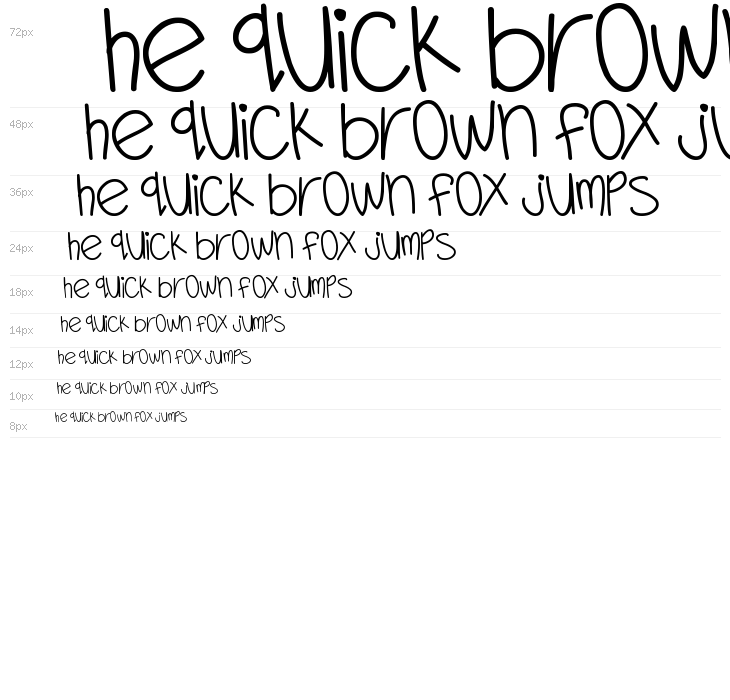 72px he quick brow
48px he quick brown fox ju
36px he quick brown fox jumps
24px he quick brown fox jumps
18px he quick brown fox jumps
14px he quick brown fox jumps
12px he quick brown fox jumps
10px he quick brown fox jumps
8px he quick brown fox jumps